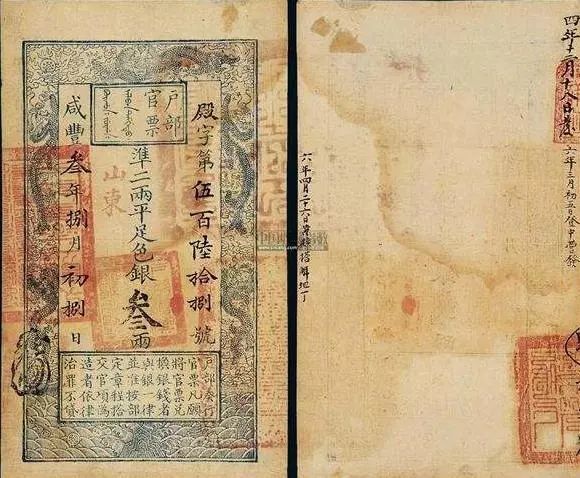 户部
官票
殿字第伍百陸拾捌號
準二兩平足色銀叁兩
山東
咸豐叁年捌月初捌日
户部奏行
官票凡願
將官票兌
換銀錢者
與銀一律
並准按部
定章程搭
交官項偽
造者依律
治罪不貸
四年十一月十八日
六年三月初五日登中營發
六年四月二十六日搭解地丁